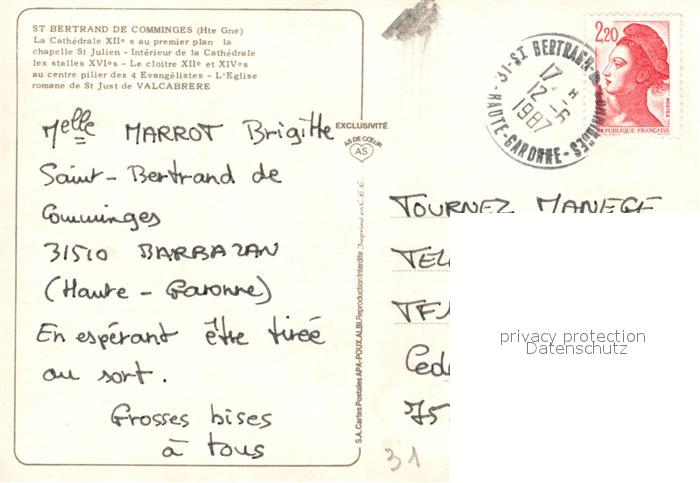 ST BERTRAND DE COMMINGES (Hte Gne)
La Cathédrale XIIe s au premier plan la
chapelle St Julien - Intérieur de la Cathédrale
les stalles XVIes - Le cloitre XIIe et XIVes
au centre pilier des 4 Evangélistes - L'Eglise
romane de St Just de VALCABRERE
Melle MARROT Brigitte
Saint-Bertrand de
Comminges
31510 BARBAZAN
(Haute-Garonne)
En espérant être tirée
au sort.
Grosses bises
à tous
EXCLUSIVITÉ
AS DE CŒUR
AS
S.A. Cartes Postales APA-POUX, ALBI, Reproduction Interdite Imprimé en C.E.E.
31-ST BERTRAND-DE COMMINGES-
17 H
12-6
1987
HAUTE-GARONNE
2,20
POSTES
REPUBLIQUE FRANÇAISE
TOURNEZ MANEGE
TEL
TF1
Cede
75
31
privacy protection
Datenschutz